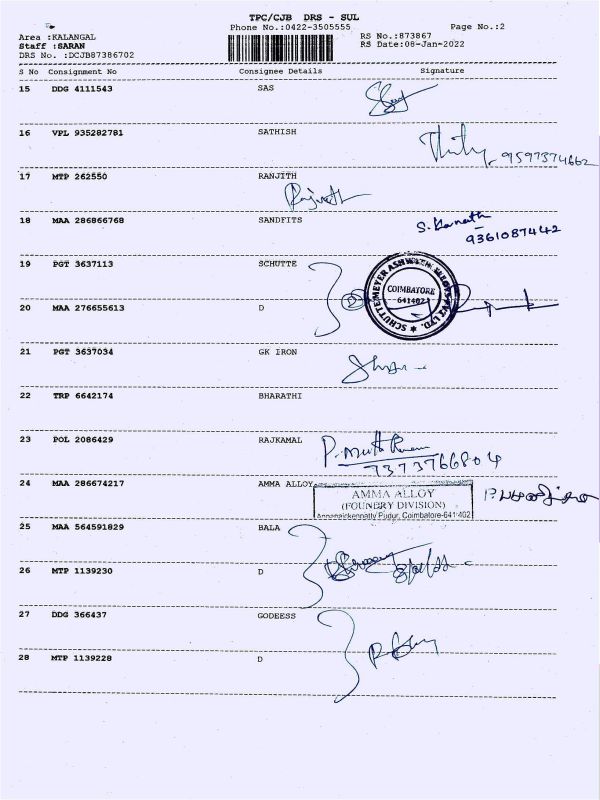 TPC/CJB DRS - SUL
Phone No.:0422-3505555 Page No.:2
Area :KALANGAL RS No.:873867
Staff :SARAN RS Date:08-Jan-2022
DRS No. :DCJB87386702
S No Consignment No Consignee Details Signature
15 DDG 4111543 SAS
16 VPL 935282781 SATHISH
9597374662
17 MTP 262550 RANJITH
18 MAA 286866768 SANDFITS
9361087442
19 PGT 3637113 SCHUTTE
SCHUTTE MEYER ASHWATH ALLOYS PVT LTD.
COIMBATORE
641402
20 MAA 276655613 D
21 PGT 3637034 GK IRON
22 TRP 6642174 BHARATHI
23 POL 2086429 RAJKAMAL
7373766804
24 MAA 286674217 AMMA ALLOY
AMMA ALLOY
(FOUNDRY DIVISION)
Pudur, Coimbatore-641 402
25 MAA 564591829 BALA
26 MTP 1139230 D
27 DDG 366437 GODEESS
28 MTP 1139228 D